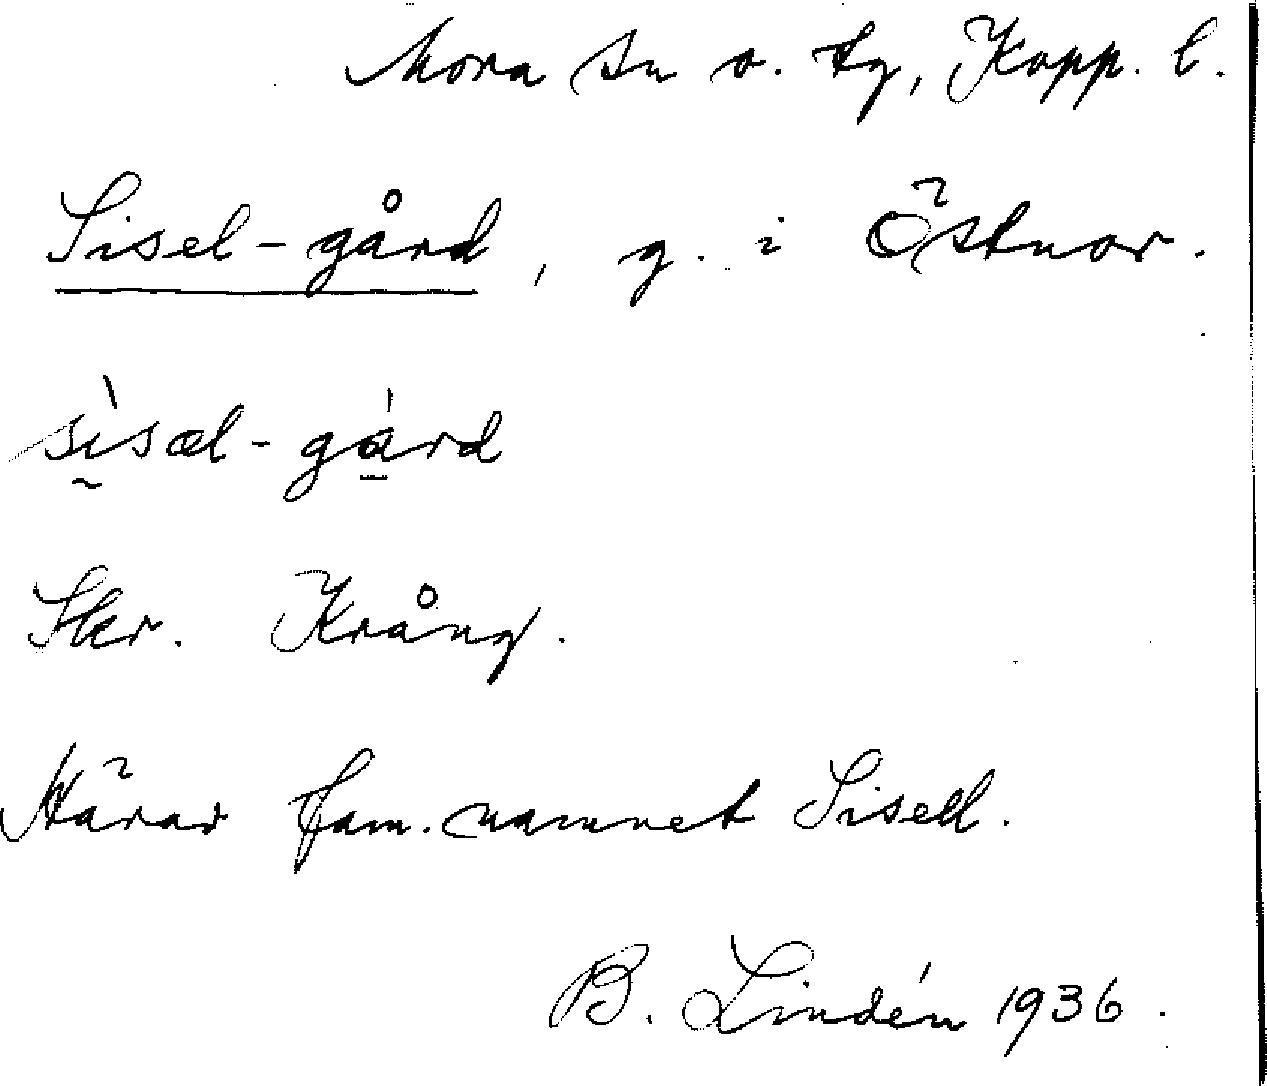 Mora sn o. tg, Kopp. l.
Sisel-gård, g. i Östnor.
sìsæl-gárd
Skr. Krång.
Härav fam.namnet Sisell.
B. Lindén 1936.